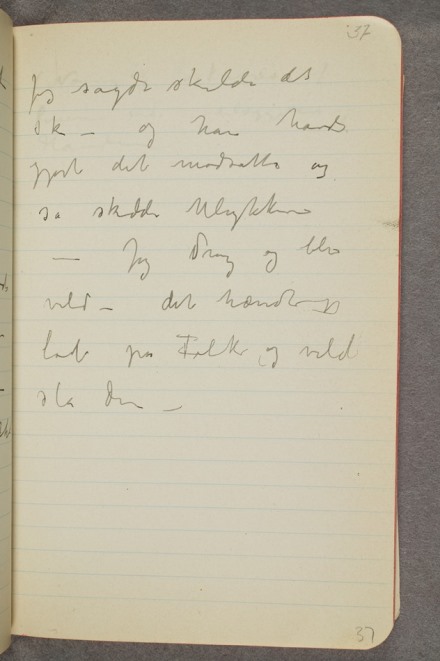 37
Jeg sagde skulde det
ske — og han havde
gjort det modsatte og
sa skedde Ulykken
— Jeg drog og blev
vild — det hændte jeg
løb på Folk og vild
sla dem —
37